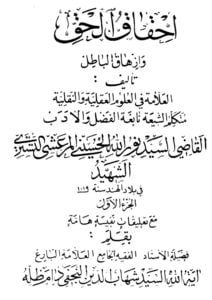 احقاق الحق
وازهاق الباطل
تأليف :
العلامة في العلوم العقلية والنقلية
متكلم الشيعة نابغة الفضل والادب
القاضي السيد نور الله الحسيني المرعشي التستري
الشهيد
في بلاد الهند سنة ١٠١٩
الجزء الأول
مع تعليقات نفيسة هامة
بقلم :
فضيلة الأستاذ الفقيه الجامع العلامة البارع
آية الله السيد شهاب الدين النجفي دام ظله